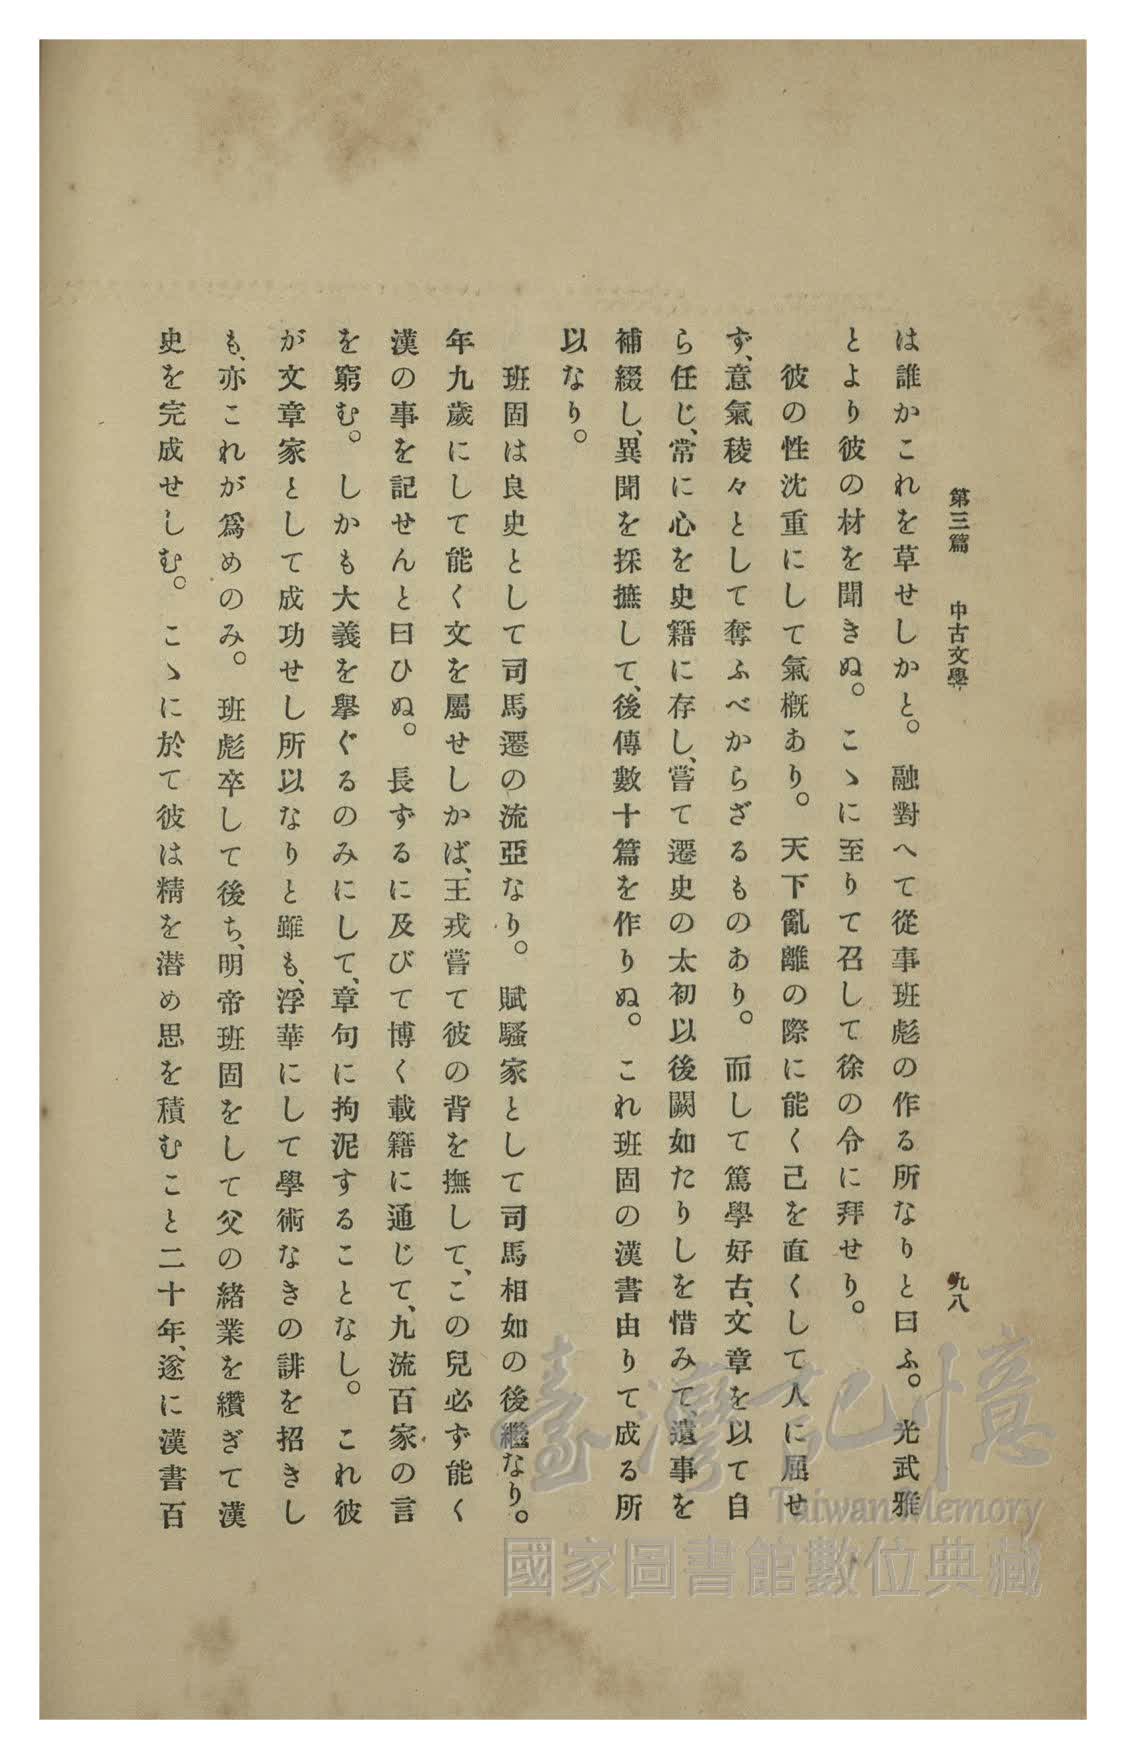 第三篇 中古文學 九八
は誰かこれを草せしかと。融對へて從事班彪の作る所なりと曰ふ。光武雅
とより彼の材を聞きぬ。こゝに至りて召して徐の令に拜せり。
彼の性沈重にして氣概あり。天下亂離の際に能く己を直くして人に屈せ
ず、意氣稜々として奪ふべからざるものあり。而して篤學好古、文章を以て自
ら任じ、常に心を史籍に存し、嘗て遷史の太初以後闕如たりしを惜みて、遺事を
補綴し、異聞を採摭して、後傳數十篇を作りぬ。これ班固の漢書由りて成る所
以なり。
班固は良史として司馬遷の流亞なり。賦騷家として司馬相如の後繼なり。
年九歲にして能く文を屬せしかば、王戎嘗て彼の背を撫して、この兒必ず能く
漢の事を記せんと曰ひぬ。長ずるに及びて博く載籍に通じて、九流百家の言
を窮む。しかも大義を擧ぐるのみにして、章句に拘泥することなし。これ彼
が文章家として成功せし所以なりと雖も、浮華にして學術なきの誹を招きし
も、亦これが爲めのみ。班彪卒して後ち、明帝班固をして父の緖業を纘ぎて漢
史を完成せしむ。こゝに於て彼は精を潜め思を積むこと二十年、遂に漢書百
臺灣記憶
Taiwan Memory
國家圖書館數位典藏